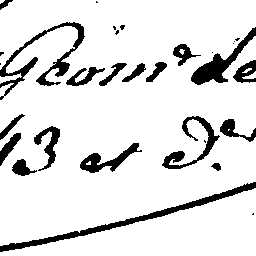 Geom.e de
13 et d.er